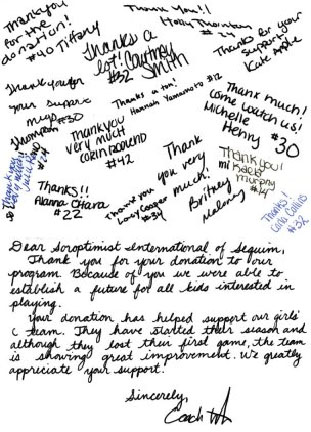 Thank you
for the
donation!!
#40 Tiffany
Thank You!!
Holly
#24
Thanks for your
support
Kate Apple
Thanks a
lot! Courtney
#32 Smith
Thank you for
your support
#30
Thompson
Thanks a ton!
Hannah Yamamoto #12
Thank you
very much
#42
Thanx much!
come watch us!
Michelle
Henry #30
Thank
you very
much!
Britney
Thank you!
Thanks!!
Alanna O'Hara
#22
Thank you
Lacy Cooper
#34
Thanks!
Carla Collins
#32
Dear Soroptimist International of Sequim,
Thank you for your donation to our
program. Because of you we were able to
establish a future for all kids interested in
playing.
Your donation has helped support our girls'
C team. They have started their season and
although they lost their final game, the team
is showing great improvement. We greatly
appreciate your support!
Sincerely,
Coach